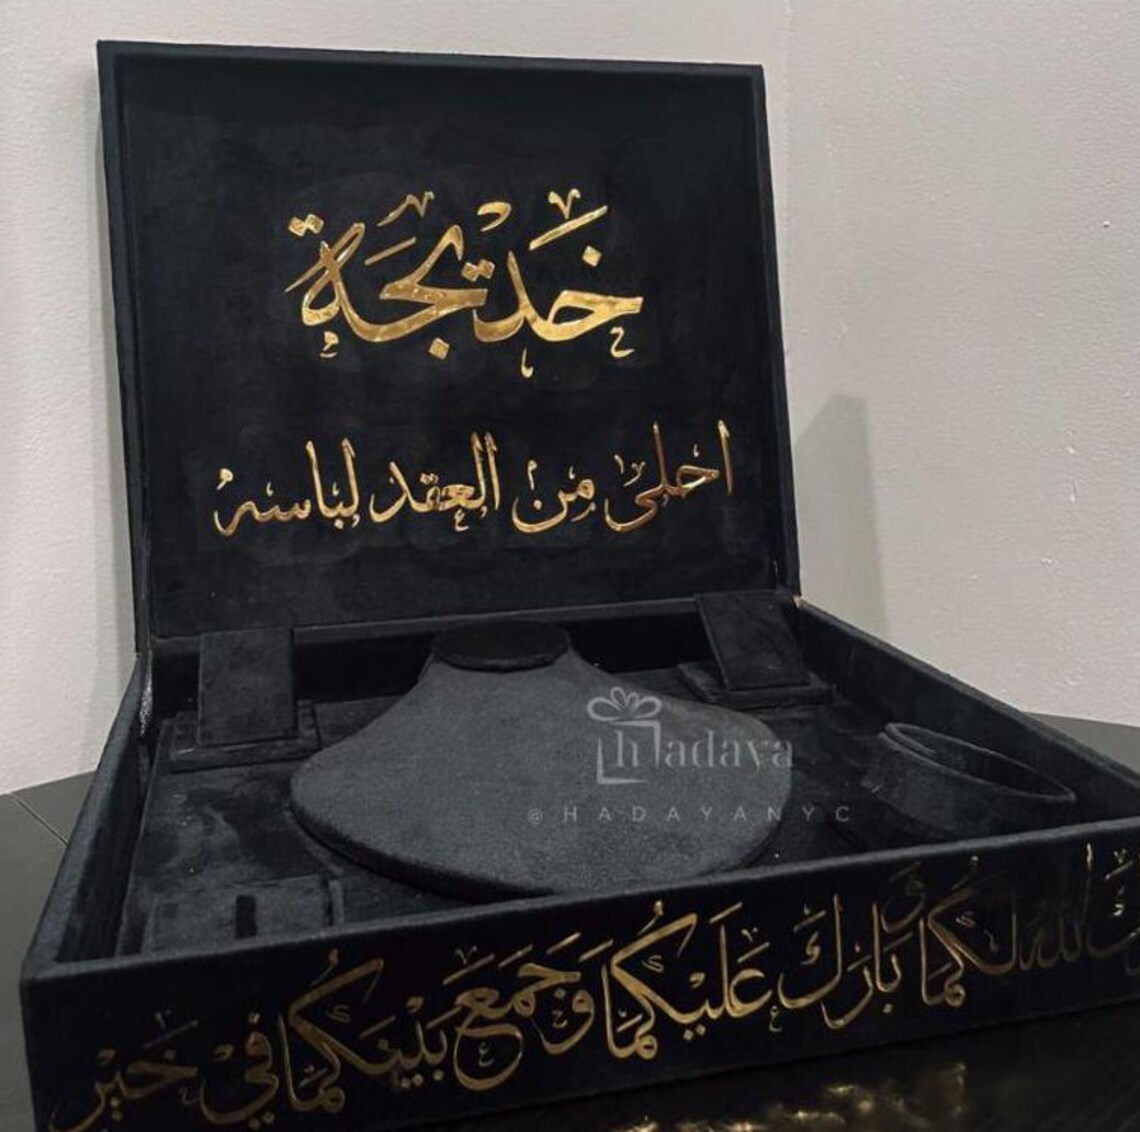 خديجة
احلى من العقد لباسه
hadaya
@HADAYANYC
الله لكما و بارك عليكما و جمع بينكما في خير